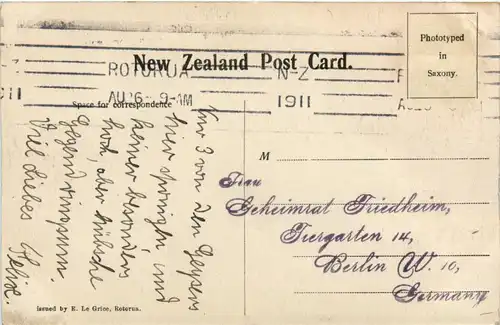 Phototyped
in
Saxony.
New Zealand Post Card.
ROTORUA N-Z
AU 26 9-AM 1911
Space for correspondence
Nur 3 von den Geysers
hier springen und
keiner besonders
hoch, aber hübsche
Gegend ringsum.
Viel Liebes Felix.
M
Frau
Geheimrat Friedheim,
Tiergarten 14,
Berlin W. 10,
Germany
Issued by E. Le Grice, Rotorua.